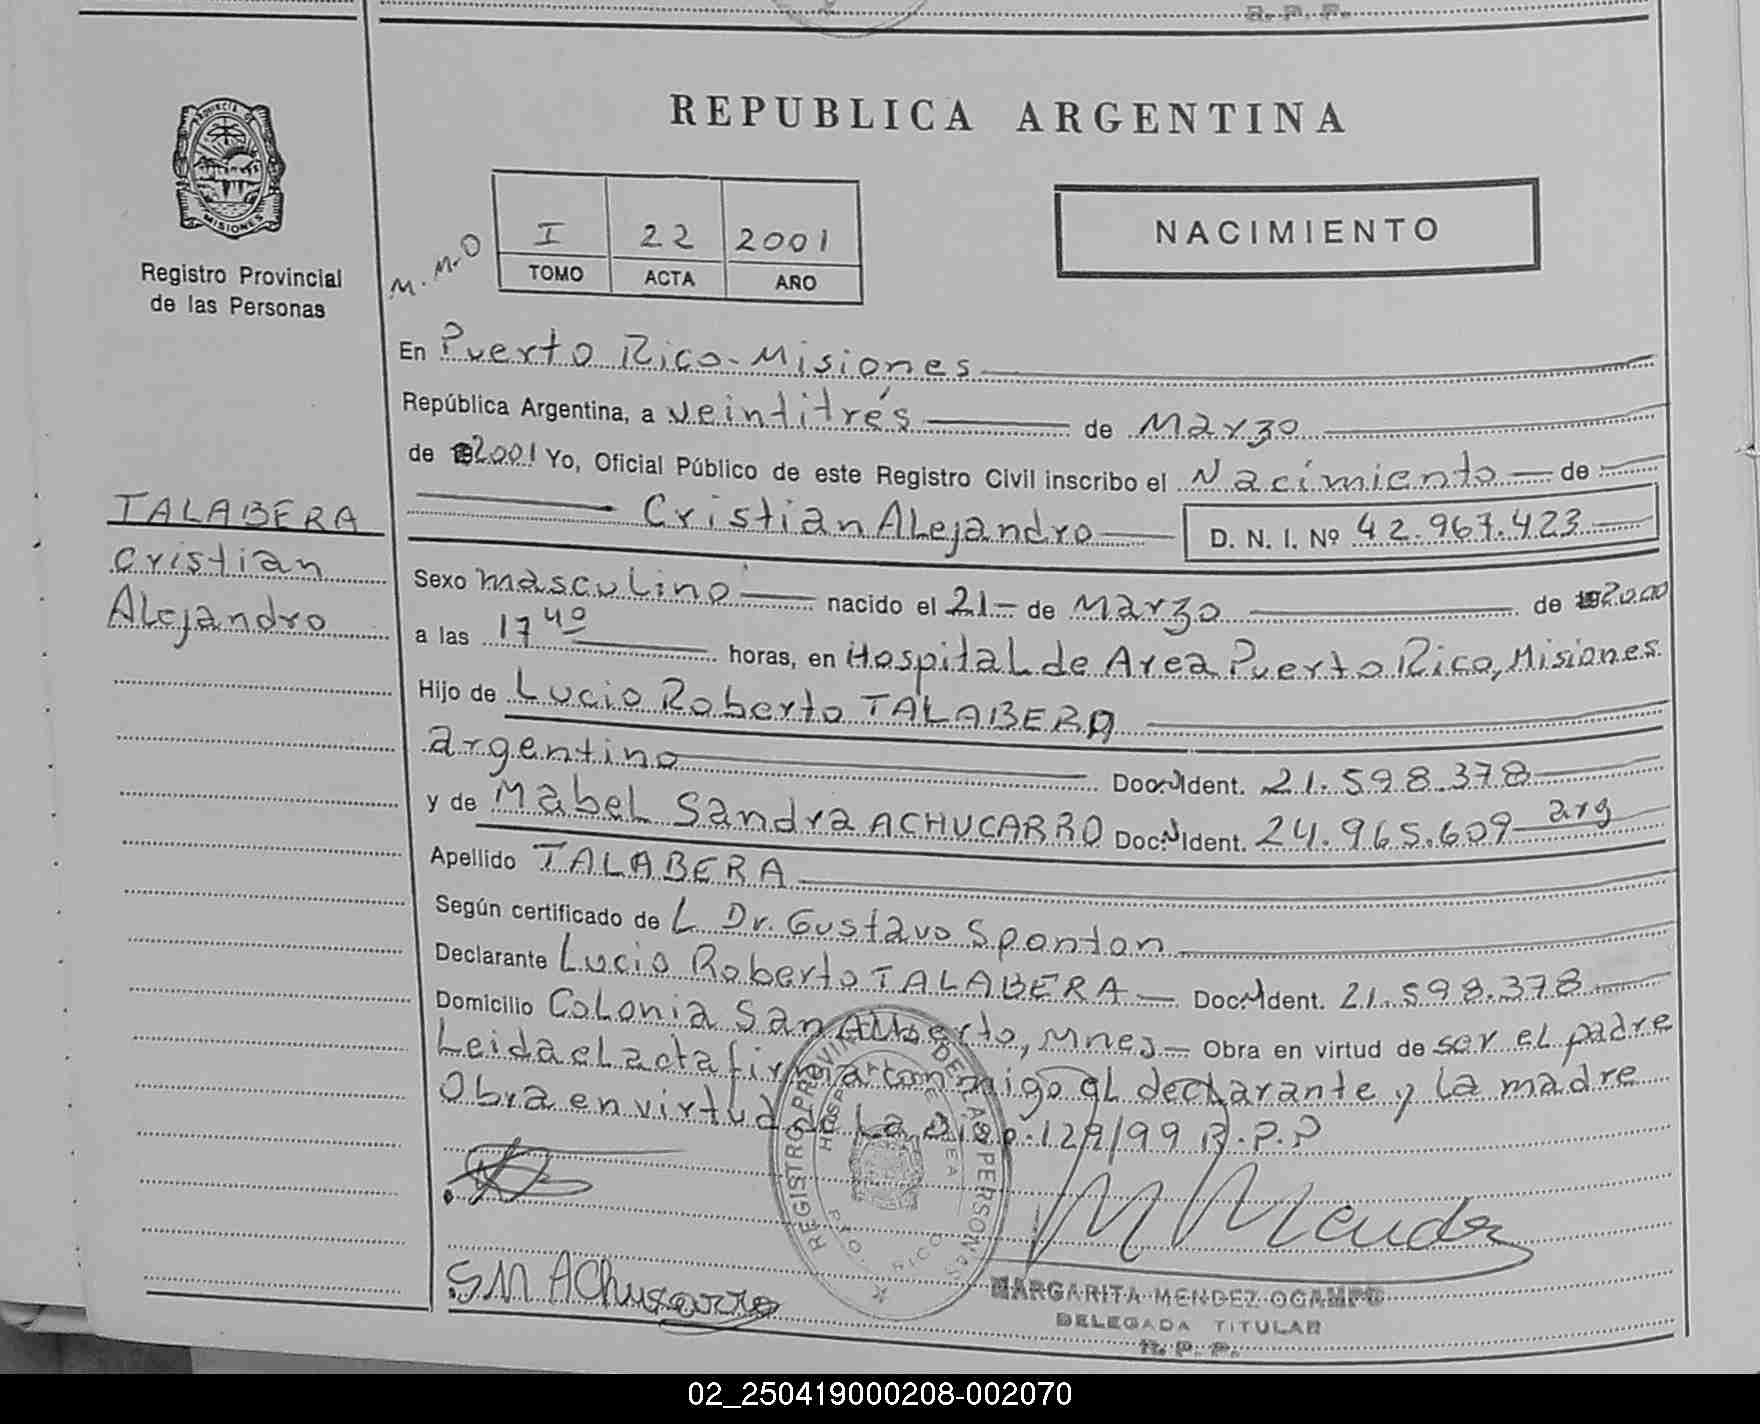 R. P. P.
REPUBLICA ARGENTINA
PROVINCIA DE MISIONES
Registro Provincial
de las Personas
M.M.O
I 22 2001
TOMO ACTA AÑO
NACIMIENTO
En Puerto Rico - Misiones
República Argentina, a veintitrés de Marzo
de 2001 Yo, Oficial Público de este Registro Civil inscribo el Nacimiento de
Cristian Alejandro D. N. I. Nº 42.967.423
TALABERA
Cristian
Alejandro
Sexo masculino nacido el 21 de Marzo de 2000
a las 17 40 horas, en Hospital de Area Puerto Rico, Misiones.
Hijo de Lucio Roberto TALABERA
argentino Doc. Ident. 21.598.378
y de Mabel Sandra ACHUCARRO Doc. Ident. 24.965.609 arg
Apellido TALABERA
Según certificado de L Dr. Gustavo Sponton
Declarante Lucio Roberto TALABERA Doc. Ident. 21.598.378
Domicilio Colonia San Alberto, Mnes Obra en virtud de ser el padre
Leida el acta firman conmigo el declarante y la madre
Obra en virtud de La Disp. 129/99 R.P.P
REGISTRO PROVINCIAL DE LAS PERSONAS
M Mendez
S M Achucarro
MARGARITA MENDEZ OCAMPO
DELEGADA TITULAR
R. P. P.
02_250419000208-002070